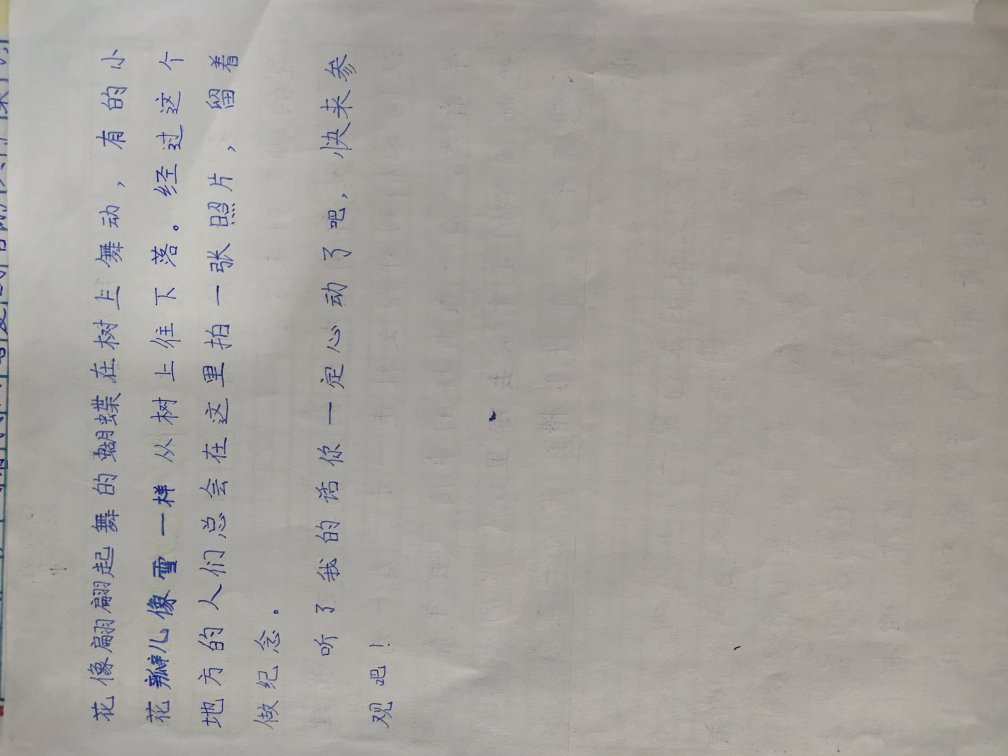 花像翩翩起舞的蝴蝶在树上舞动，有的小
花瓣儿像雪一样从树上往下落。经过这个
地方的人们总会在这里拍一张照片，留着
做纪念。
听了我的话你一定心动了吧，快来参
观吧！